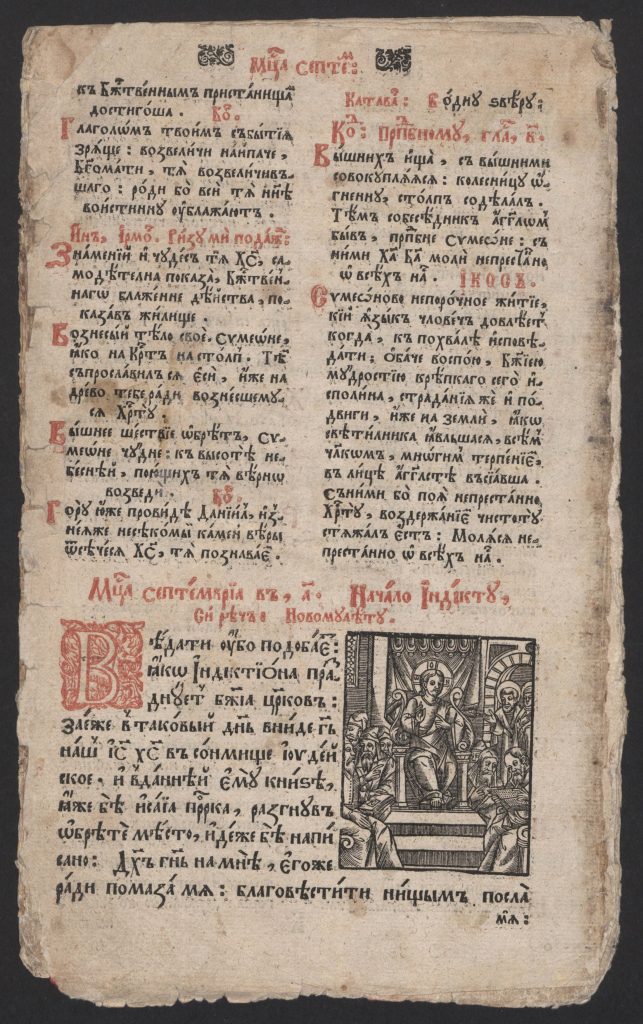 Мц҃а септе́м:
къ Бж҃твеннымъ приста́нищамъ
дости́гоша.
Бо҃.
Глаго́лѡмъ твои́мъ събытїѧ
зрѧ́ще: возвели́чи наи́паче,
Бг҃ома́ти, тѧ̀ возвели́чивъ-
шаго: ро́ди бо всѝ тѧ̀ ны́нѣ
вои́стинну ѹ҆блажа́ютъ.
И҆́нъ, І҆рмо́. Ри́зу ми пода́й:
Зна́менїй и҆ чуде́съ тѧ̀ Хс҃, са-
модѣ́телна показа̀, Бж҃тве́н-
нагѡ блаже́нне дѣ́йства, по-
каза́въ жили́ще.
Вознесы́й тѣ́ло своѐ Сѷмеѡ́не,
ꙗ҆́ко на Кр҃тъ на сто́лп. Тѣ́м
съпросла́вилъсѧ є҆сѝ, и҆́же на
дре́во тебе́ ра́ди возне́сшему-
сѧ Хр҃ту̀.
Вы́шнее ше́ствїе ѡ҆брѣ́тъ, Сѷ-
меѡ́не чу́дне: къ высотѣ̀ не-
бе́снѣй, пою́щихъ тѧ̀ вѣ́рнѡ
возведѝ.
Бо҃.
Го́ру ю҆́же прови́дѣ Данїи́лъ, и҆з̾
неѧ́же несѣко́мый ка́мен вѣ́ры
ѿсѣче́сѧ Хс҃, тѧ̀ познава́ем.
Катава́: В ро́дну ѕвѣ́ру:
Ко҃: прпⷣбному, гла҃, в҃.
Вы́шнихъ и҆ща̀, съ вы́шними
совокуплѧ́ѧсѧ: колесни́цу ѻ҆́-
гненну, сто́лпъ содѣ́лалъ.
Тѣ́мъ собесѣ́дникъ а҆́гг҃лѡмъ
бы́въ, прпⷣбне Сѷмеѡ́не: съ
ни́ми Ха҃ Ба҃ молѝ непреста́ннѡ
ѡ҆ всѣ́хъ на́с.
І҆́косъ.
Сѷмеѡ́ново непоро́чное житїѐ,
кі́й ꙗ҆зы́къ чл҃овечъ довлѣ́етъ
когда̀, къ похва́лѣ и҆сповѣ́-
дати: ѻ҆ба́че воспою̀, Бж҃їею
му́дростїю крѣ́пкаго сего̀ и҆-
споли́на, страда́нїѧ же и҆ по́-
двиги, и҆́же на землѝ, ꙗ҆́кѡ
свѣти́лника ꙗ҆́вльшасѧ, всѣ́м
чл҃кѡмъ, мно́гимъ терпѣ́нїем,
въ ли́цѣ а҆́гг҃лстѣ въсїѧ́вша.
Съ ни́ми бо поѧ̀ непреста́ннѡ
Хр҃ту̀, воздержа́нїем чистоту̀
стѧжа́лъ є҆́стъ: Молѧ́сѧ не-
преста́ннѡ ѡ҆ всѣ́хъ на́с.
Мц҃а септе́мврїа въ, а҃. Нача́ло І҆нді́кту,
Си рѣ́чь: Новомулѣ́ту.
Вѣ́дати ѹ҆́бо подоба́ет:
ꙗ҆́кѡ І҆ндїктїѡ́на пра́-
днует бж҃їа цр҃ковъ:
Зане́же в̾ таковы́й дн҃ь вни́де гд҃ь
на́шъ і҆с҃ хс҃ въ со́нмище і҆ѹде́й
ское, и҆ в̾да́ннѣй є҆мꙋ̀ кни́зѣ,
ꙗ҆́же бѣ̀ и҆са́їа пр҃рка, разгну́въ
ѡ҆брѣ́те мѣ́сто, и҆дѣ́же бѣ̀ напи́
сано: Дх҃ъ гн҃ь на мнѣ̀, є҆го́же
ра́ди помаза̀ мѧ̀: благовѣсти́ти ни́щымъ посла̀
мѧ̀: